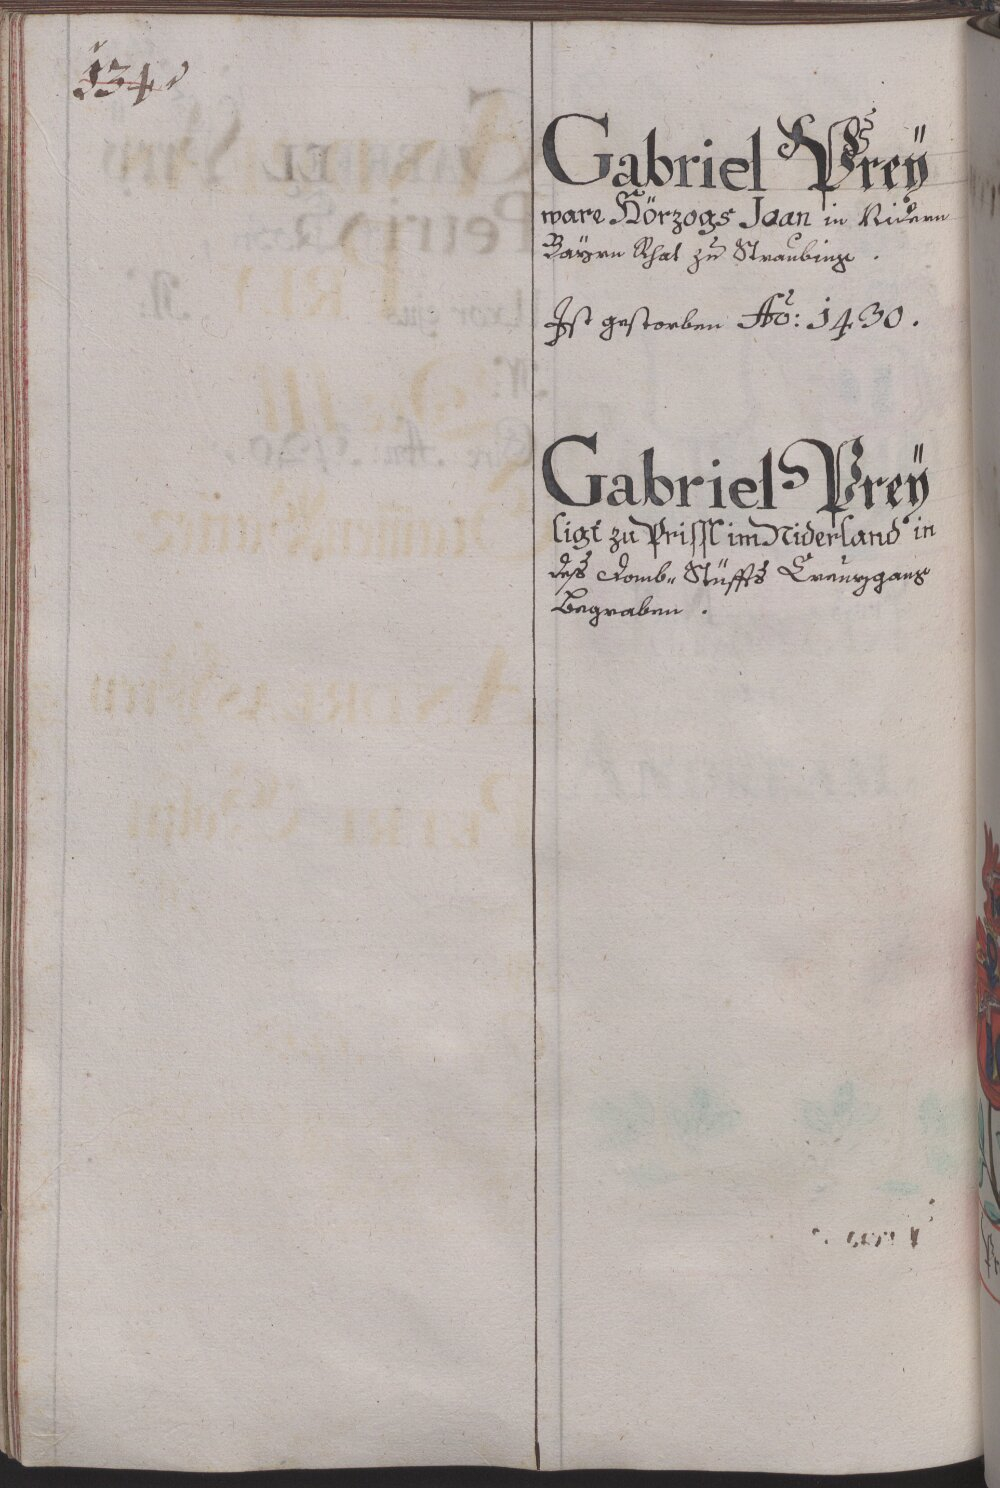 134
Gabriel Preÿ
ware Hörzogs Jaan in Nidern
Bayrn Rhat zu Straubing .
Ist gestorben Ao: 1430 .
Gabriel Preÿ
ligt zu Prissl im Niderland in
dess Domb„ Stüffts Creuzgang
Begraben .